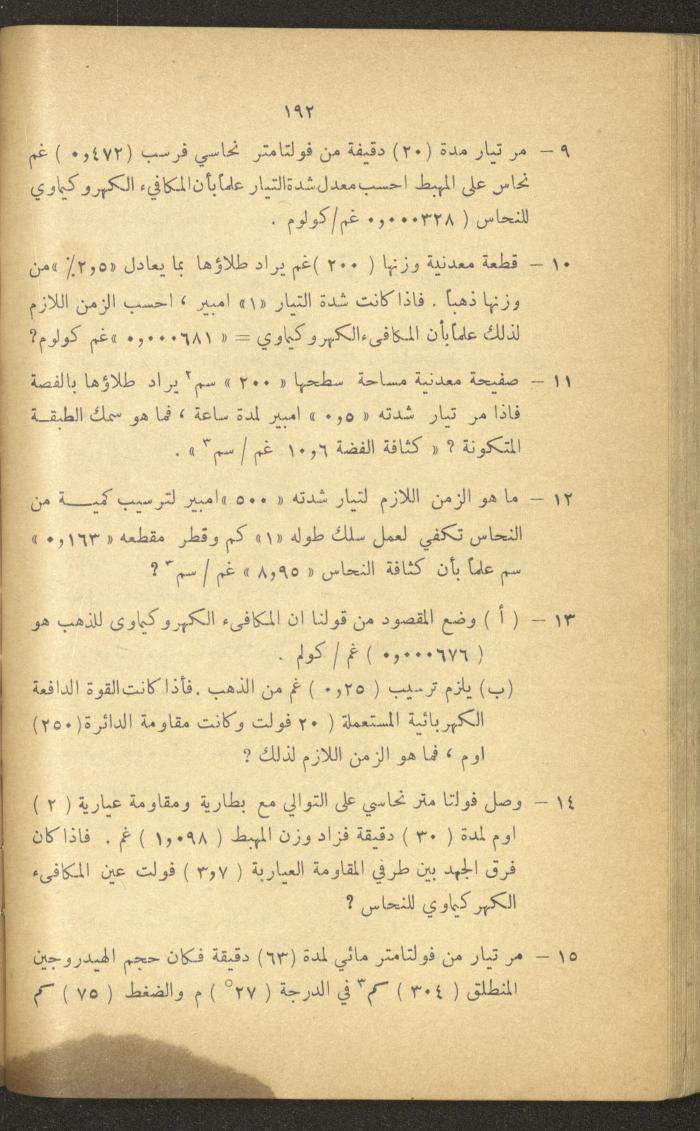 ١٩٢
٩ – مر تيار مدة (٢٠) دقيقة من فولتامتر نحاسي فرسب (٠,٤٧٢) غم
نحاس على المهبط احسب معدل شدة التيار علماً بأن المكافيء الكهروكياوي
للنحاس ( ٠,٠٠٠٣٢٨ غم/كولوم .
١٠ – قطعة معدنية وزنها ( ٢٠٠ )غم يراد طلاؤها بما يعادل «٢,٥٪ »من
وزنها ذهباً . فاذا كانت شدة التيار «١» امبير ، احسب الزمن اللازم
لذلك علماً بأن المكافىء الكهروكياوي = « ٠,٠٠٠٦٨١ »غم كولوم؟
١١ – صفيحة معدنية مساحة سطحها « ٢٠٠ » سم٢ يراد طلاؤها بالفصة
فاذا مر تيار شدته « ٠,٥ » امبير لمدة ساعة ، فما هو سمك الطبقـة
المتكونة ؟ « كثافة الفضة ١٠,٦ غم / سم٣ » .
١٢ – ما هو الزمن اللازم لتيار شدته « ٥٠٠ »امبير لترسيب كميـة من
النحاس تكفي لعمل سلك طوله «١» كم وقطر مقطعه « ٠,١٦٣ »
سم علماً بأن كثافة النحاس « ٨,٩٥ » غم / سم٣ ؟
١٣ – ( أ ) وضع المقصود من قولنا ان المكافىء الكهروكياوى للذهب هو
( ٠,٠٠٠٦٧٦ ) غم / كولم .
(ب) يلزم ترسيب ( ٠,٢٥ ) غم من الذهب .فأذا كانت القوة الدافعة
الكهربائية المستعملة ( ٢٠ فولت وكانت مقاومة الدائرة(٢٥٠)
اوم ، فما هو الزمن اللازم لذلك ؟
١٤ – وصل فولتا متر نحاسي على التوالي مع بطارية ومقاومة عيارية ( ٢ )
اوم لمدة ( ٣٠ ) دقيقة فزاد وزن المهبط ( ١,٠٩٨ ) غم . فاذا كان
فرق الجهد بين طرفي المقاومة العياربة ( ٣,٧ ) فولت عين المكافىء
الكهركياوي للنحاس ؟
١٥ – مر تيار من فولتامتر مائي لمدة (٦٣) دقيقة فكان حجم الهيدروجين
المنطلق ( ٣٠٤ ) سم٣ في الدرجة ( ٢٧° ) م والضغط ( ٧٥ ) سم